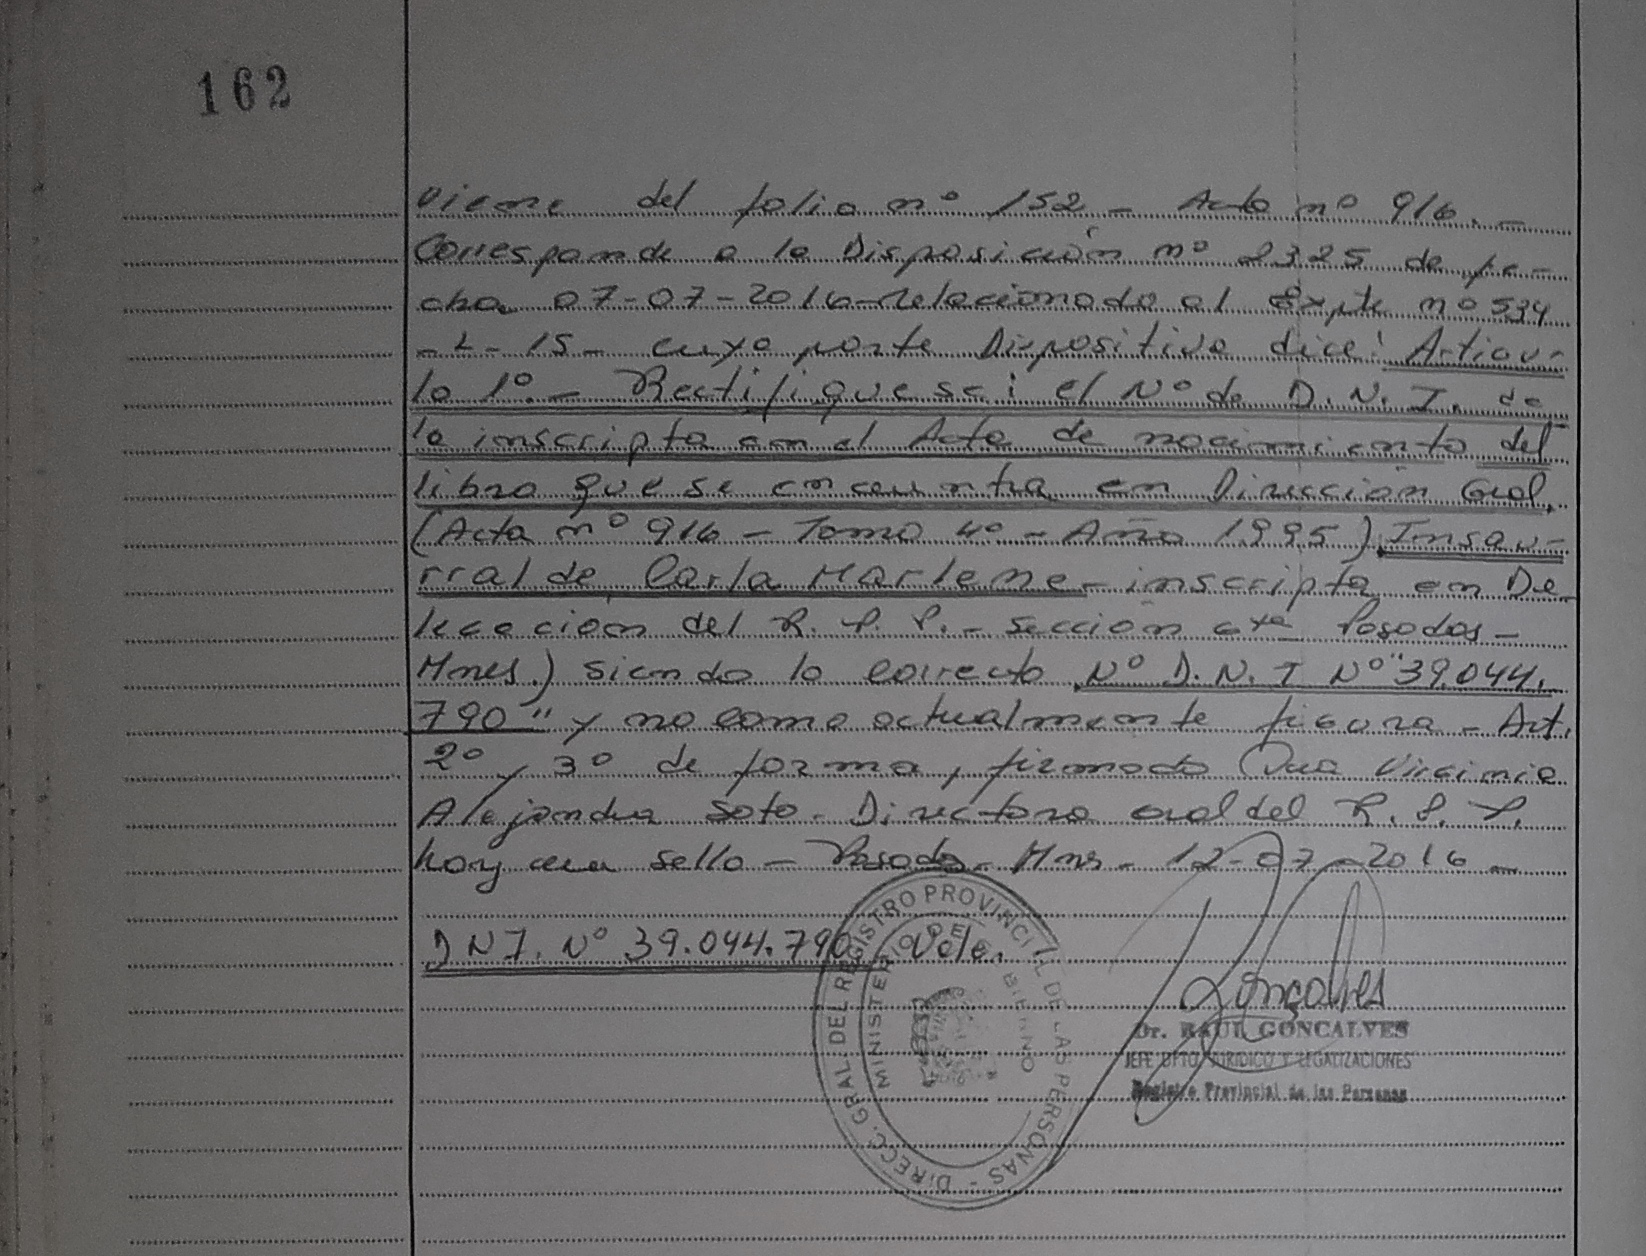 162
Viene del folio nº 152 - Acta nº 916. -
Corresponde a la Disposición nº 2325 de fe-
cha 07-07-2016 - relacionado al Expte nº 534
- L - 15 - cuya parte Dispositiva dice: Artícu-
lo 1º. - Rectifiquese: el Nº de D.N.I. de
la inscripta en el Acta de nacimiento del
libro que se encuentra en Dirección Gral.
(Acta nº 916 - Tomo 4º - Año 1995) Insau-
rralde, Carla Marlene - inscripta en De-
legación del R. P. P. - sección 6ta Posadas -
Mnes.) siendo lo correcto Nº D.N.I Nº "39.044.
790" y no como actualmente figura - Art.
2º y 3º de forma, firmado Dra Virginia
Alejandra Soto - Directora Gral del R. P. P.
hay un sello - Posadas - Mns - 12-07-2016 -
DNI. Nº 39.044.790 Vale.
DIRECC. GRAL. DEL REGISTRO PROVINCIAL DE LAS PERSONAS -
MINISTERIO DE GOBIERNO
Goncalves
Dr. RAUL GONCALVES
JEFE DPTO JURIDICO Y LEGALIZACIONES
Registro Provincial de las Personas